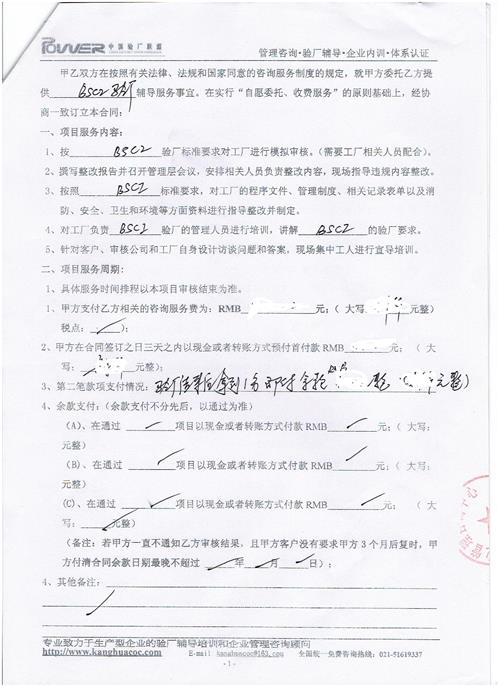 POWER 中国验厂联盟
管理咨询·验厂辅导·企业内训·体系认证
甲乙双方在按照有关法律、法规和国家同意的咨询服务制度的规定，就甲方委托乙方提
供 BSCI 验厂 辅导服务事宜。在实行“自愿委托、收费服务”的原则基础上，经协
商一致订立本合同：
一、项目服务内容：
1、按 BSCI 验厂标准要求对工厂进行模拟审核。（需要工厂相关人员配合）。
2、撰写整改报告并召开管理层会议，安排相关人员负责整改内容，现场指导违规内容整改。
3、按照 BSCI 标准要求，对工厂的程序文件、管理制度、相关记录表单以及消
防、安全、卫生和环境等方面资料进行指导整改并制定。
4、对工厂负责 BSCI 验厂的管理人员进行培训，讲解 BSCI 的验厂要求。
5、针对客户、审核公司和工厂自身设计访谈问题和答案，现场集中工人进行宣导培训。
二、项目服务周期：
1、具体服务时间排程以本项目审核结束为准。
1、甲方支付乙方相关的咨询服务费为：RMB 元；（ 大写 元整）
税点： ）；
2、甲方在合同签订之日三天之内以现金或者转账方式预付首付款 RMB 元；（ 大
写： 元整）；
3、第二笔款项支付情况：
4、余款支付：（余款支付不分先后，以通过为准）
（A）、在通过 项目以现金或者转账方式付款 RMB 元；（ 大写：
元整）
（B）、在通过 项目以现金或者转账方式付款 RMB 元；（ 大写：
元整）
（C）、在通过 项目以现金或者转账方式付款 RMB 元；（ 大
写： 元整）
（备注：若甲方一直不通知乙方审核结果，且甲方客户没有要求甲方 3 个月后复时，甲
方付清合同余款日期最晚不超过 年 月 日）；
4、其他备注：
专业致力于生产型企业的验厂辅导培训和企业管理咨询顾问
http://www.kanghuacoc.com E-mail kanghuacoc@163.com 全国统一免费咨询热线：021-51619337
- 1 -